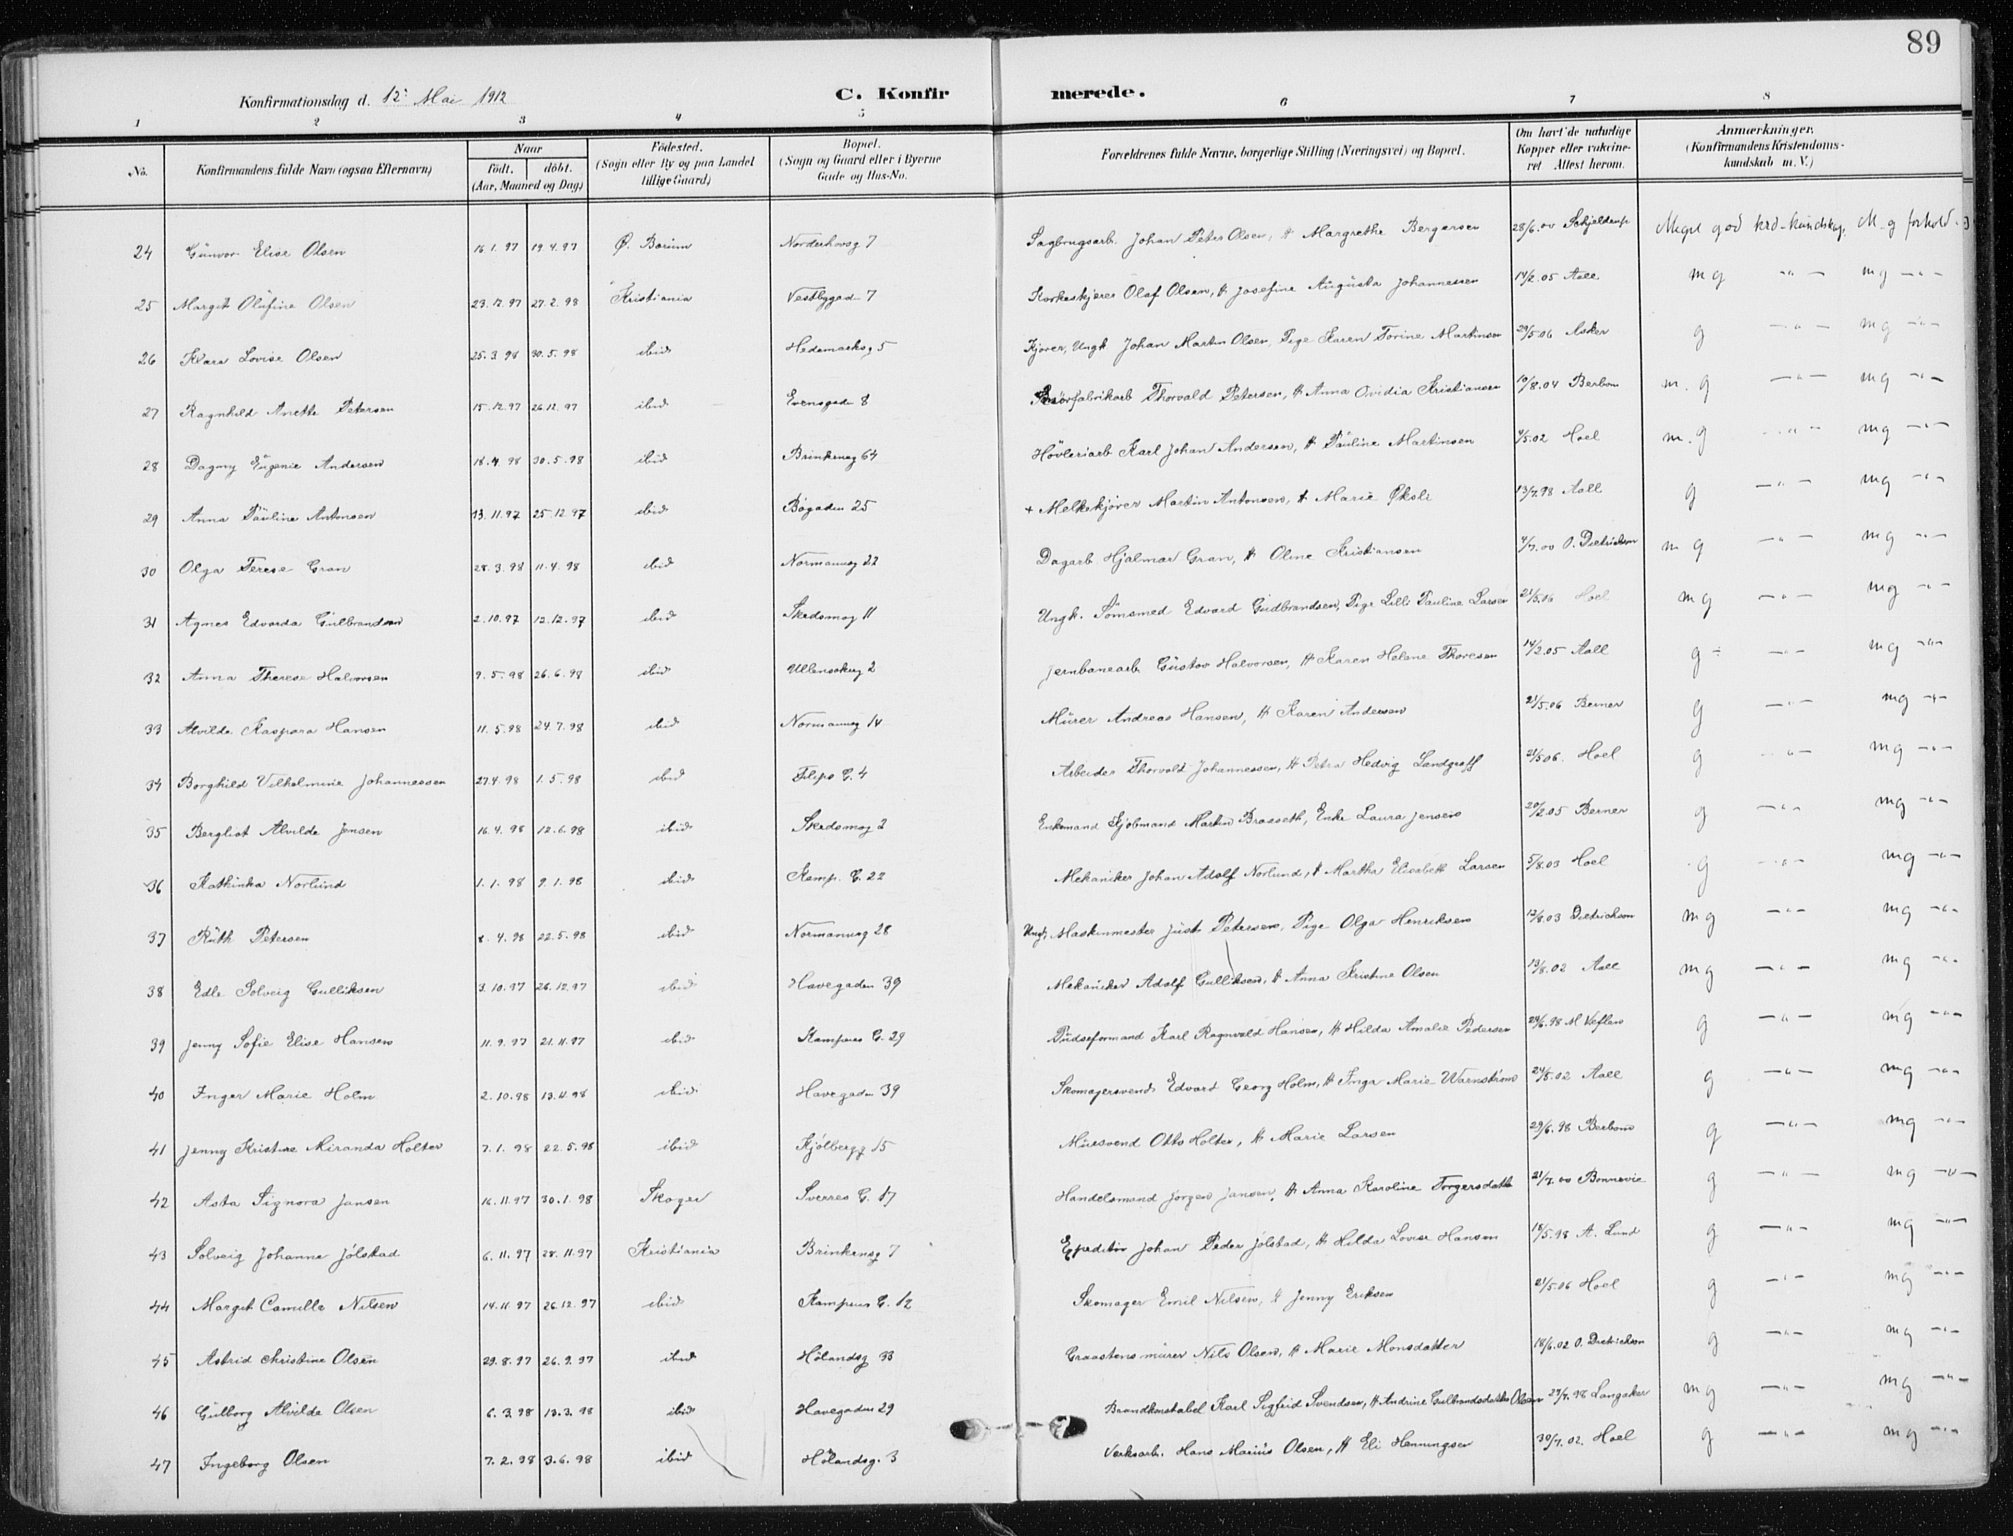 89
Konfirmationsdag d. 12' Mai 1912 C. Konfirmerede.
1 2 3 4 5 6 7 8
No. Konfirmandens fulde Navn (ogsaa Efternavn) Naar født. døbt. (Aar, Maaned og Dag) Fødested. (Sogn eller By og paa Landet tillige Gaard) Bopæl. (Sogn og Gaard eller i Byerne Gade og Hus-No. Forældrenes fulde Navne, borgerlige Stilling (Næringsvei) og Bopæl. Om havt de naturlige Kopper eller vakcineret Attest herom. Anmærkninger. (Konfirmandens Kristendomskundskab m. V.)
24 Gunvor Elise Olsen 16.1.97 19.4.97 Ø. Borum Norderhovsg 7 Sagbrugsarb. Johan Peter Olsen, H Margrethe Bergersen 28/6.00 Schjelderup Meget god krd-kundskap, M. g forhold
25 Margit Olufine Olsen 23.12.97 27.2.98 Kristiania Vestbygad 7 Korkeskjærer Olaf Olsen, H Josefine Augusta Johannessen 14/2.05 Aall mg -"- mg -"-
26 Klara Lovise Olsen 25.3.98 30.5.98 ibid Hedemarksg 5 Kjører, Ungk Johan Martin Olsen, Pige Karen Torine Martinsen 29/5.06 Asker g -"- mg -"-
27 Ragnhild Anette Petersen 15.12.97 26.12.97 ibid Evensgade 8 Thorvald Petersen, H Anna Ovidia Kristiansen 10/8.04 Berbom m.g -"- mg -"-
28 Dagny Eugenie Andersen 18.4.98 30.5.98 ibid Brinkensg 64 Høvleriarb Karl Johan Andersen, H Pauline Martinsen 5.02 Hoel m.g -"- mg -"-
29 Anna Pauline Antonsen 13.11.97 25.12.97 ibid Bøgaden 25 + Melkekjører Martin Antonsen, H Marie Øksli 13/7.98 Aall g -"- mg -"-
30 Olga Terese Gran 28.3.98 11.4.98 ibid Normannsg 22 Dagarb Hjalmar Gran, H Oline Kristiansen 4/7.00 O. Dietrichson mg -"- mg -"-
31 Agnes Edvarda Gulbrandsen 2.10.97 12.12.97 ibid Skedsmog 11 Ungk. Sømsmed Edvard Gudbrandsen, Pige Lilli Pauline Larsen 21/5.06 Hoel mg -"- mg -"-
32 Anna Therese Halvorsen 9.5.98 26.6.98 ibid Ullensakerg 2 Jernbanearb Gustav Halvorsen, H Karen Helene Thoresen 14/2.05 Aall g -"- mg -"-
33 Alvilde Kaspara Hansen 11.5.98 24.7.98 ibid Normannsg 14 Murer Andreas Hansen, H Karen Andersen 21/5.06 Berner g -"- mg -"-
34 Borghild Vilhelmine Johannessen 27.4.98 1.5.98 ibid Filips G. 4 Arbeider Thorvald Johannessen, H Petra Hedvig Landgraff 21/5 06. Hoel g -"- mg -"-
35 Bergliot Alvilde Jensen 16.4.98 12.6.98 ibid Skedsmog 2 Enkemand Kjøbmand Martin Braaseth, Enke Laura Jensen 20/2.05 Berner g -"- mg -"-
36 Kathinka Norlund 1.1.98 9.1.98 ibid Kamp. G. 22 Mekaniker Johan Adolf Norlund, H Martha Elisabeth Larsen 5/8.03 Hoel g -"- mg -"-
37 Ruth Petersen 8.4.98 22.5.98 ibid Normannsg 28 Ungk, Maskinmester Just Petersen, Pige Olga Henriksen 12/8.03 Dietrichson mg -"- mg -"-
38 Edle Solveig Gulliksen 3.10.97 26.12.97 ibid Havegaden 39 Mekaniker Adolf Gulliksen, H Anna Kristine Olsen 13/8.02 Aall mg -"- mg -"-
39 Jenny Sofie Elise Hansen 11.9.97 21.11.97 ibid Kampens G. 29 Pudseformand Karl Ragnvald Hansen, H Hilda Amalie Pedersen 29/6.98 g -"- mg -"-
40 Inger Marie Holm 2.10.98 13.4.98 ibid Havegaden 39 Skomagersvend Edvard Georg Holm, H Inga Marie Warnstrøm 24/5.02 Aall g -"- mg -"-
41 Jenny Kristine Miranda Holter 7.1.98 22.5.98 ibid Kjølbergg 15 Mursvend Otto Holter, H Marie Larsen 29/6.98 Berbom g -"- mg -"-
42 Asta Signora Jansen 16.11.97 30.1.98 Skoger Sverres G. 17 Handelsmand Jørgen Jansen, H Anna Karoline Torgersdatt 21/7.00 Bonnevie g -"- mg -"-
43 Solveig Johanne Jølstad 6.11.97 28.11.97 Kristiania Brinkensg 7 Expeditør Johan Peder Jølstad, H Hilda Lovise Hansen 18/5.98 A. Lund g -"- mg -"-
44 Margit Camilla Nilsen 14.11.97 26.12.97 ibid Kampens G. 12 Skomager Emil Nilsen, H Jenny Eriksen 21/5.06 Hoel g -"- mg -"-
45 Astrid Christine Olsen 29.8.97 26.9.97 ibid Hølandsg 33 Graastensmurer Nils Olsen, H Marie Monsdatter 18/6.02 O. Dietrichson g -"- mg -"-
46 Gulborg Alvilde Olsen 6.3.98 13.3.98 ibid Havegaden 29 Brandkonstabel Karl Sigfrid Svendsen, H Andrine Gulbrandsdatter Olsen 29/7.98 Langaker mg -"- mg -"-
47 Ingeborg Olsen 7.2.98 3.6.98 ibid Hølandsg. 3 Verksarb. Hans Marius Olsen, H Eli Henningsen 30/7.02. Hoel g -"- mg -"-